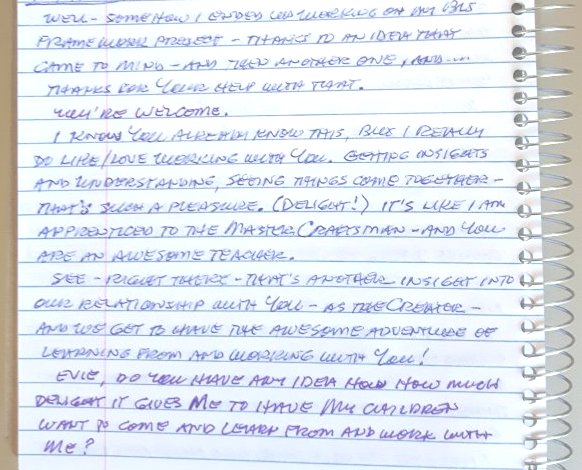 WELL - SOMEHOW I ENDED UP WORKING ON MY BIS
FRAMEWORK PROJECT - THANKS TO AN IDEA THAT
CAME TO MIND - AND THEN ANOTHER ONE, AND....
THANKS FOR YOUR HELP WITH THAT.
YOU'RE WELCOME.
I KNOW YOU ALREADY KNOW THIS, BUT I REALLY
DO LIKE/LOVE WORKING WITH YOU. GETTING INSIGHTS
AND UNDERSTANDING, SEEING THINGS COME TOGETHER -
THAT'S SUCH A PLEASURE. (DELIGHT!) IT'S LIKE I AM
APPRENTICED TO THE MASTER CRAFTSMAN - AND YOU
ARE AN AWESOME TEACHER.
SEE - RIGHT THERE - THAT'S ANOTHER INSIGHT INTO
OUR RELATIONSHIP WITH YOU - AS THE CREATOR -
AND WE GET TO HAVE THE AWESOME ADVENTURE OF
LEARNING FROM AND WORKING WITH YOU!
EVIE, DO YOU HAVE ANY IDEA HOW HOW MUCH
DELIGHT IT GIVES ME TO HAVE MY CHILDREN
WANT TO COME AND LEARN FROM AND WORK WITH
ME?